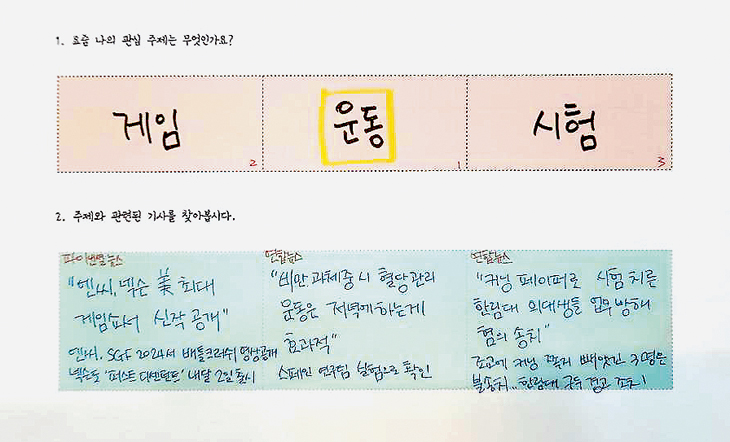 1. 요즘 나의 관심 주제는 무엇인가요?
게임
2
운동
1
시험
3
2. 주제와 관련된 기사를 찾아봅시다.
파이낸셜뉴스
"엔씨, 넥슨 美 최대
게임쇼서 신작 공개"
엔씨, SGF 2024서 배틀크러쉬 영상공개
넥슨도 '퍼스트 디센던트' 내달 2일 출시
연합뉴스
"비만 과체중 시 혈당관리
운동은 저녁에 하는게
효과적"
스페인 연구팀 실험으로 확인
연합뉴스
"커닝 페이퍼로 시험 치른
한림대 의대생들 업무방해
혐의 송치"
조교에 커닝 쪽지 빼앗긴 3명은
불송치.. 한림대 구두 경고 조치